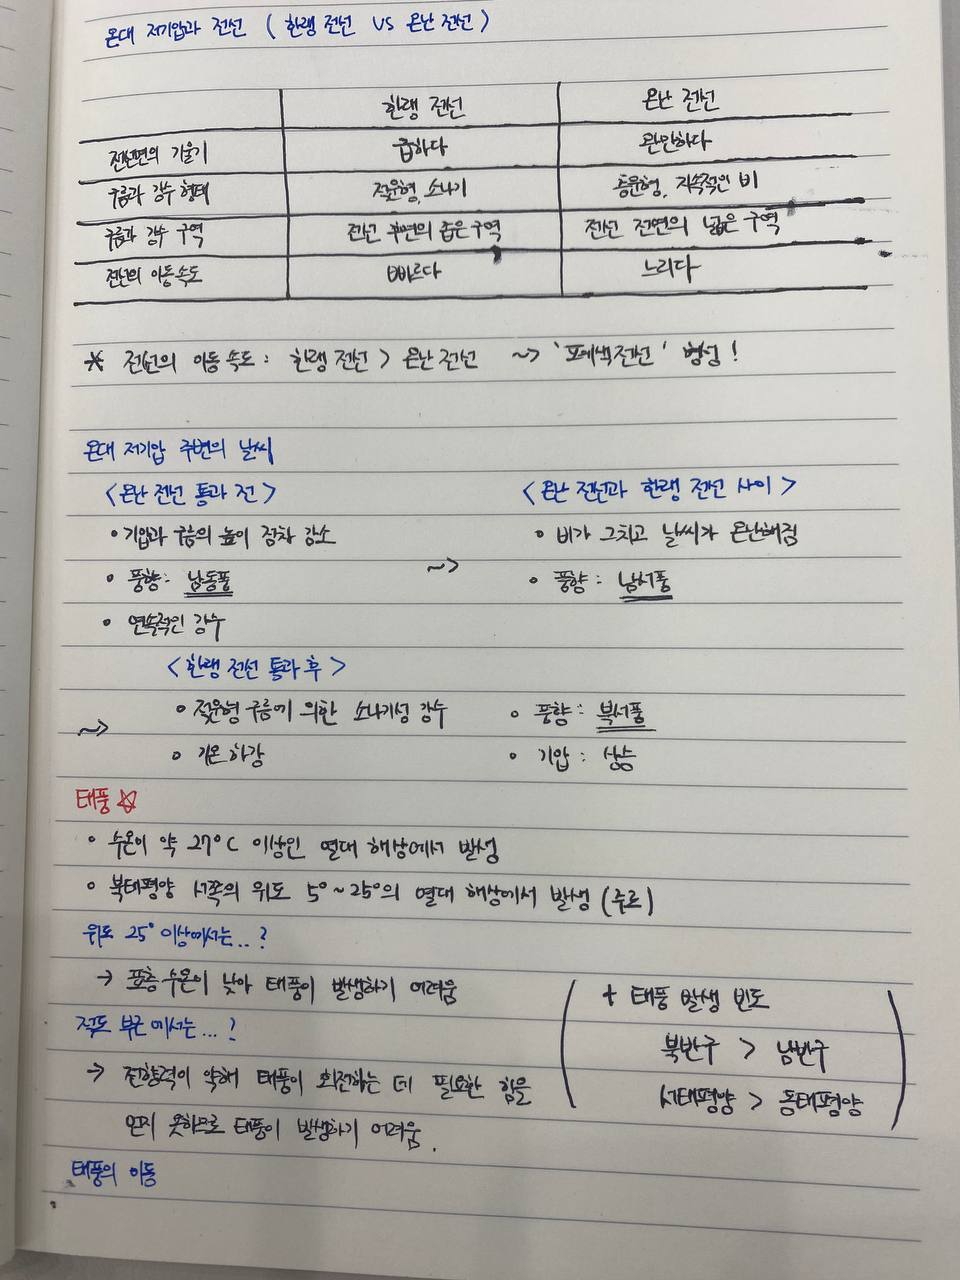 온대 저기압과 전선 ( 한랭 전선 VS 온난 전선 )
한랭 전선 온난 전선
전선면의 기울기 급하다 완만하다
구름과 강수 형태 적운형, 소나기 층운형, 지속적인 비
구름과 강수 구역 전선 후면의 좁은 구역 전선 전면의 넓은 구역
전선의 이동속도 빠르다 느리다
* 전선의 이동 속도 : 한랭 전선 > 온난 전선 ~> '폐색전선' 형성 !
온대 저기압 주변의 날씨
<온난 전선 통과 전> <온난 전선과 한랭 전선 사이>
• 기압과 구름의 높이 점차 감소 • 비가 그치고 날씨가 온난해짐
• 풍향 : 남동풍 ~> • 풍향 : 남서풍
• 연속적인 강수
<한랭 전선 통과 후>
~> • 적운형 구름에 의한 소나기성 강수 • 풍향 : 북서풍
• 기온 하강 • 기압 : 상승
태풍 ☆
• 수온이 약 27°C 이상인 열대 해상에서 발생
• 북태평양 서쪽의 위도 5°~25°의 열대 해상에서 발생 (주로)
위도 25° 이상에서는...?
→ 표층 수온이 낮아 태풍이 발생하기 어려움
적도 부근에서는...?
→ 전향력이 약해 태풍이 회전하는 데 필요한 힘을
얻지 못하므로 태풍이 발생하기 어려움.
( + 태풍 발생 빈도
북반구 > 남반구
서태평양 > 동태평양 )
태풍의 이동